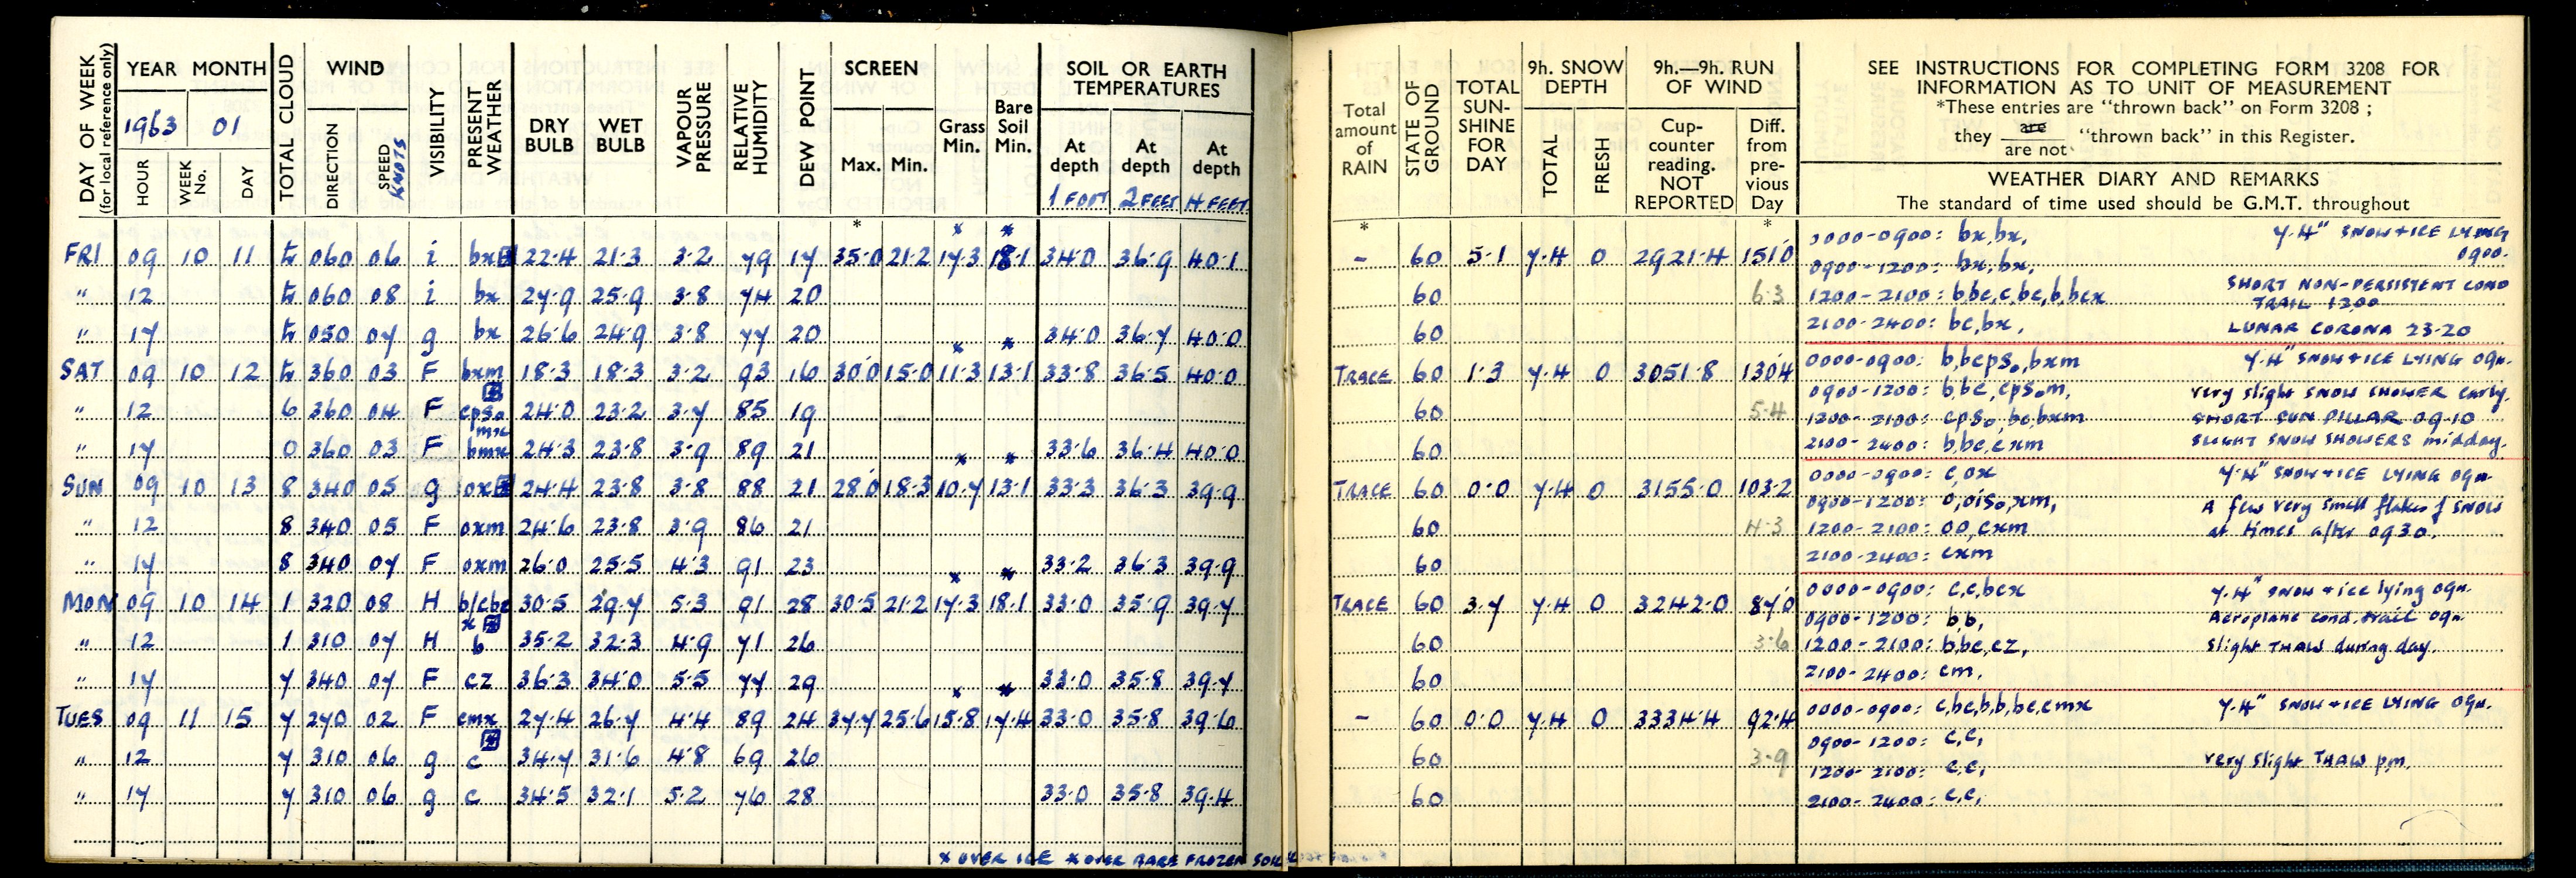 DAY OF WEEK (for local reference only) YEAR MONTH TOTAL CLOUD WIND VISIBILITY PRESENT WEATHER DRY BULB WET BULB VAPOUR PRESSURE RELATIVE HUMIDITY DEW POINT SCREEN Grass Min. Bare Soil Min. SOIL OR EARTH TEMPERATURES
1963 01
HOUR WEEK No. DAY DIRECTION SPEED KNOTS Max. Min. At depth At depth At depth
1 FOOT 2 FEET 4 FEET
FRI 09 10 11 tr 060 06 i bx 22.4 21.3 3.2 79 17 35.0 21.2 17.3 18.1 34.0 36.9 40.1
" 12 tr 060 08 i bx 27.9 25.9 3.8 74 20
" 17 tr 050 07 g bx 26.6 24.9 3.8 77 20 34.0 36.7 40.0
SAT 09 10 12 tr 360 03 F bxm 18.3 18.3 3.2 93 16 30.0 15.0 11.3 13.1 33.8 36.5 40.0
" 12 6 360 04 F cpso mx 24.0 23.2 3.7 85 19
" 17 0 360 03 F bmx 24.3 23.8 3.9 89 21 33.6 36.4 40.0
SUN 09 10 13 8 340 05 g ox 24.4 23.8 3.8 88 21 28.0 18.3 10.7 13.1 33.3 36.3 39.9
" 12 8 340 05 F oxm 24.6 23.8 3.9 86 21
" 17 8 340 07 F oxm 26.0 25.5 4.3 91 23 33.2 36.3 39.9
MON 09 10 14 1 320 08 H b/cbc x 30.5 29.7 5.3 91 28 30.5 21.2 17.3 18.1 33.0 35.9 39.7
" 12 1 310 07 H b 35.2 32.3 4.9 71 26
" 17 7 340 07 F cz 36.3 34.0 5.5 77 29 33.0 35.8 39.7
TUES 09 11 15 7 270 02 F cmx 27.4 26.7 4.4 89 24 37.7 25.6 15.8 17.4 33.0 35.8 39.6
" 12 7 310 06 g c 34.7 31.6 4.8 69 26
" 17 7 310 06 g c 34.5 32.1 5.2 76 28 33.0 35.8 39.4
x OVER ICE * OVER BARE FROZEN SOIL
Total amount of RAIN STATE OF GROUND TOTAL SUN-SHINE FOR DAY 9h. SNOW DEPTH 9h.—9h. RUN OF WIND
TOTAL FRESH Cup-counter reading. NOT REPORTED Diff. from pre-vious Day
SEE INSTRUCTIONS FOR COMPLETING FORM 3208 FOR
INFORMATION AS TO UNIT OF MEASUREMENT
*These entries are "thrown back" on Form 3208 ;
they are / are not "thrown back" in this Register.
WEATHER DIARY AND REMARKS
The standard of time used should be G.M.T. throughout
- 60 5.1 7.4 0 2921.4 151.0
60 6.3
60
0000-0900: bx,bx, 7.4" SNOW + ICE LYING 0900.
0900-1200: bx,bx,
1200-2100: b,bc,c,bc,b,bcx SHORT NON-PERSISTENT COND TRAIL 1200
2100-2400: bc,bx, LUNAR CORONA 23-20
TRACE 60 1.3 7.4 0 3051.8 130.4
60 5.4
60
0000-0900: b,bcpso,bxm 7.4" SNOW + ICE LYING 09h.
0900-1200: b,bc,cpsom, Very slight SNOW SHOWER early.
1200-2100: cpso,bc,bxm SHORT SUN PILLAR 09-10
2100-2400: b,bc,cxm SLIGHT SNOW SHOWERS midday.
TRACE 60 0.0 7.4 0 3155.0 103.2
60 4.3
60
0000-0900: c,ox 7.4" SNOW + ICE LYING 09h.
0900-1200: o,oiso,xm, A few very small flakes of SNOW
1200-2100: oo,cxm at times after 0930.
2100-2400: cxm
TRACE 60 3.7 7.4 0 3242.0 87.0
60 3.6
60
0000-0900: c,c,bcx 7.4" SNOW + ice lying 09h.
0900-1200: b,b, Aeroplane cond. trail 09h.
1200-2100: b,bc,cz, Slight THAW during day.
2100-2400: cm,
- 60 0.0 7.4 0 3334.4 92.4
60 3.9
60
0000-0900: c,bc,b,b,bc,cmx 7.4" SNOW + ICE LYING 09h.
0900-1200: c,c,
1200-2100: c,c, Very slight THAW p.m.
2100-2400: c,c,